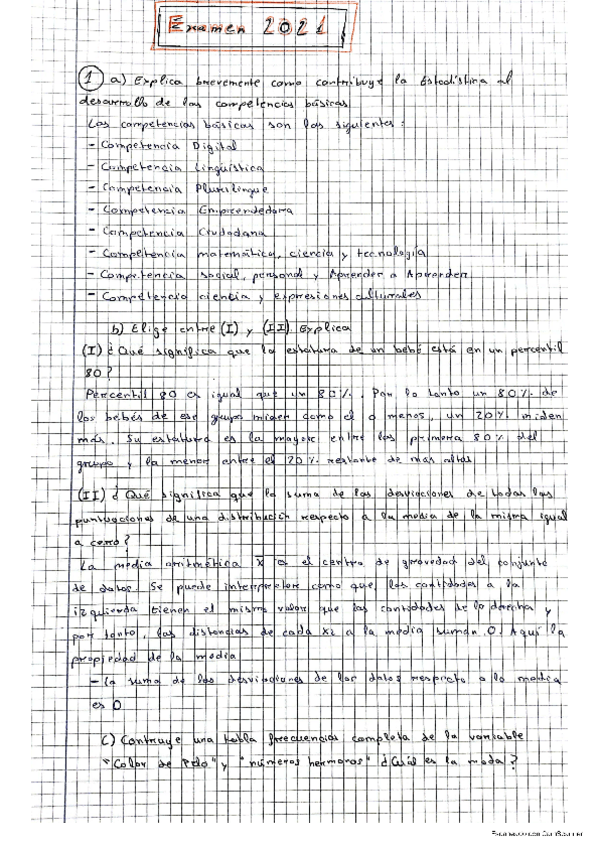 Examen 2021
1 a) Explica brevemente como contribuye la Estadística al
desarrollo de las competencias básicas
Las competencias básicas son las siguientes:
- Competencia Digital
- Competencia Lingüística
- Competencia Plurilingüe
- Competencia Emprendedora
- Competencia Ciudadana
- Competencia matemática, ciencia y tecnología
- Competencia social, personal y Aprender a Aprender
- Competencia ciencia y expresiones culturales
b) Elige entre (I) y (II). Explica
(I) ¿Qué significa que la estatura de un bebé está en un percentil
80?
Percentil 80 es igual que un 80%. Por lo tanto un 80% de
los bebés de ese grupo miden como el o menos, un 20% miden
más. Su estatura es la mayor entre las primera 80% del
grupo y la menor entre el 20% restante de más altos
(II) ¿Qué significa que la suma de las desviaciones de todas las
puntuaciones de una distribución respecto a la media de la misma igual
a cero?
La media aritmética x es el centro de gravedad del conjunto
de datos. Se puede interpretar como que las cantidades a la
izquierda tienen el mismo valor que las cantidades de la derecha y
por tanto, las distancias de cada xi a la media suman 0. Aquí la
propiedad de la media
- La suma de las desviaciones de los datos respecto a la media
es 0
c) Contruye una tabla frecuencias completa de la variable
"Color de Pelo" y "números hermanos" ¿Cuál es la moda?